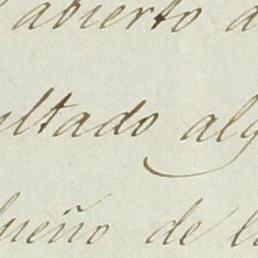 abierto
ultado alg
dueño de l